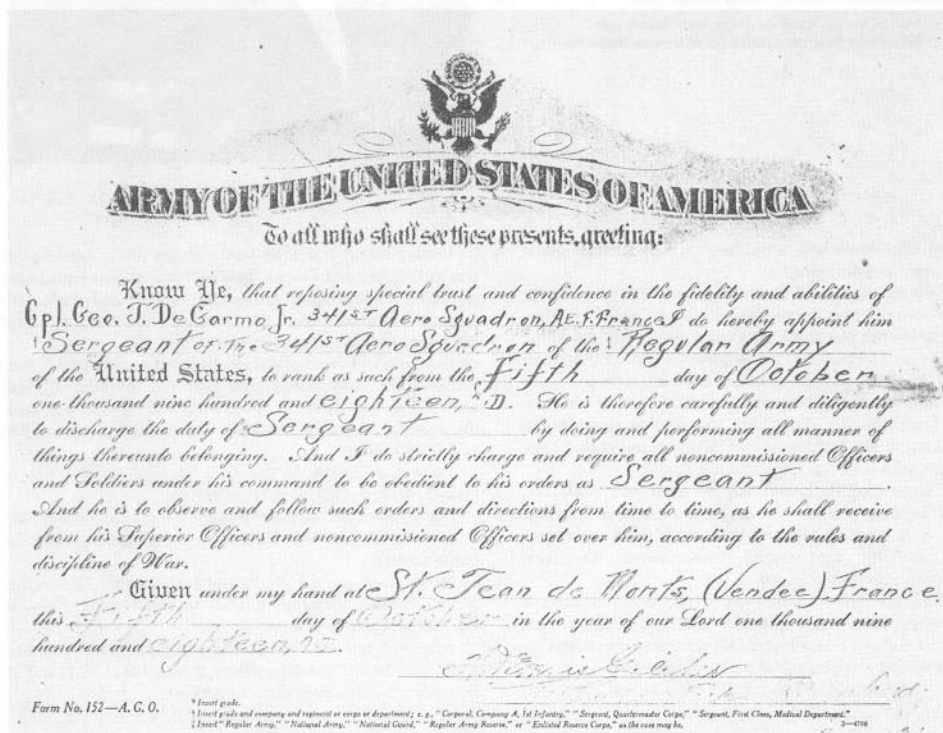 ARMY OF THE UNITED STATES OF AMERICA
To all who shall see these presents, greeting:
Know Ye, that reposing special trust and confidence in the fidelity and abilities of
Cpl. Geo. T. DeGarmo, Jr. 341ST Aero Squadron, A.E.F. France I do hereby appoint him
Sergeant of The 341ST Aero Squadron of the Regular Army
of the United States, to rank as such from the Fifth day of October
one thousand nine hundred and eighteen, D. He is therefore carefully and diligently
to discharge the duty of Sergeant by doing and performing all manner of
things thereunto belonging. And I do strictly charge and require all noncommissioned Officers
and Soldiers under his command to be obedient to his orders as Sergeant.
And he is to observe and follow such orders and directions from time to time, as he shall receive
from his Superior Officers and noncommissioned Officers set over him, according to the rules and
discipline of War.
Given under my hand at St. Jean de Monts, (Vendee) France
this Fifth day of October in the year of our Lord one thousand nine
hundred and eighteen.
Form No. 152—A. G. O.
* Insert grade.
† Insert grade and company and regiment or corps or department; e. g., "Corporal, Company A, 1st Infantry," "Sergeant, Quartermaster Corps," "Sergeant, First Class, Medical Department."
‡ Insert "Regular Army," "National Army," "National Guard," "Regular Army Reserve," or "Enlisted Reserve Corps," as the case may be.